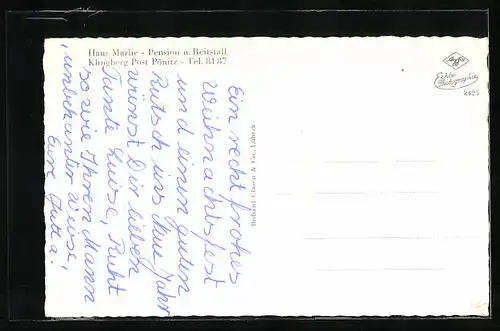 Haus Marlie - Pension u. Reitstall
Klingberg Post Pönitz - Tel. 81 87
Ein recht frohes
Weihnachtsfest
und einen guten
Rutsch ins Neue Jahr
wünst Dir lieben
Tante Luise, Ruht
so wie Ihren Mann
unbekanter weise,
Eure Jutta.
Agfa
Echte
Photographie
k425
Richard Giesen & Co., Lübeck